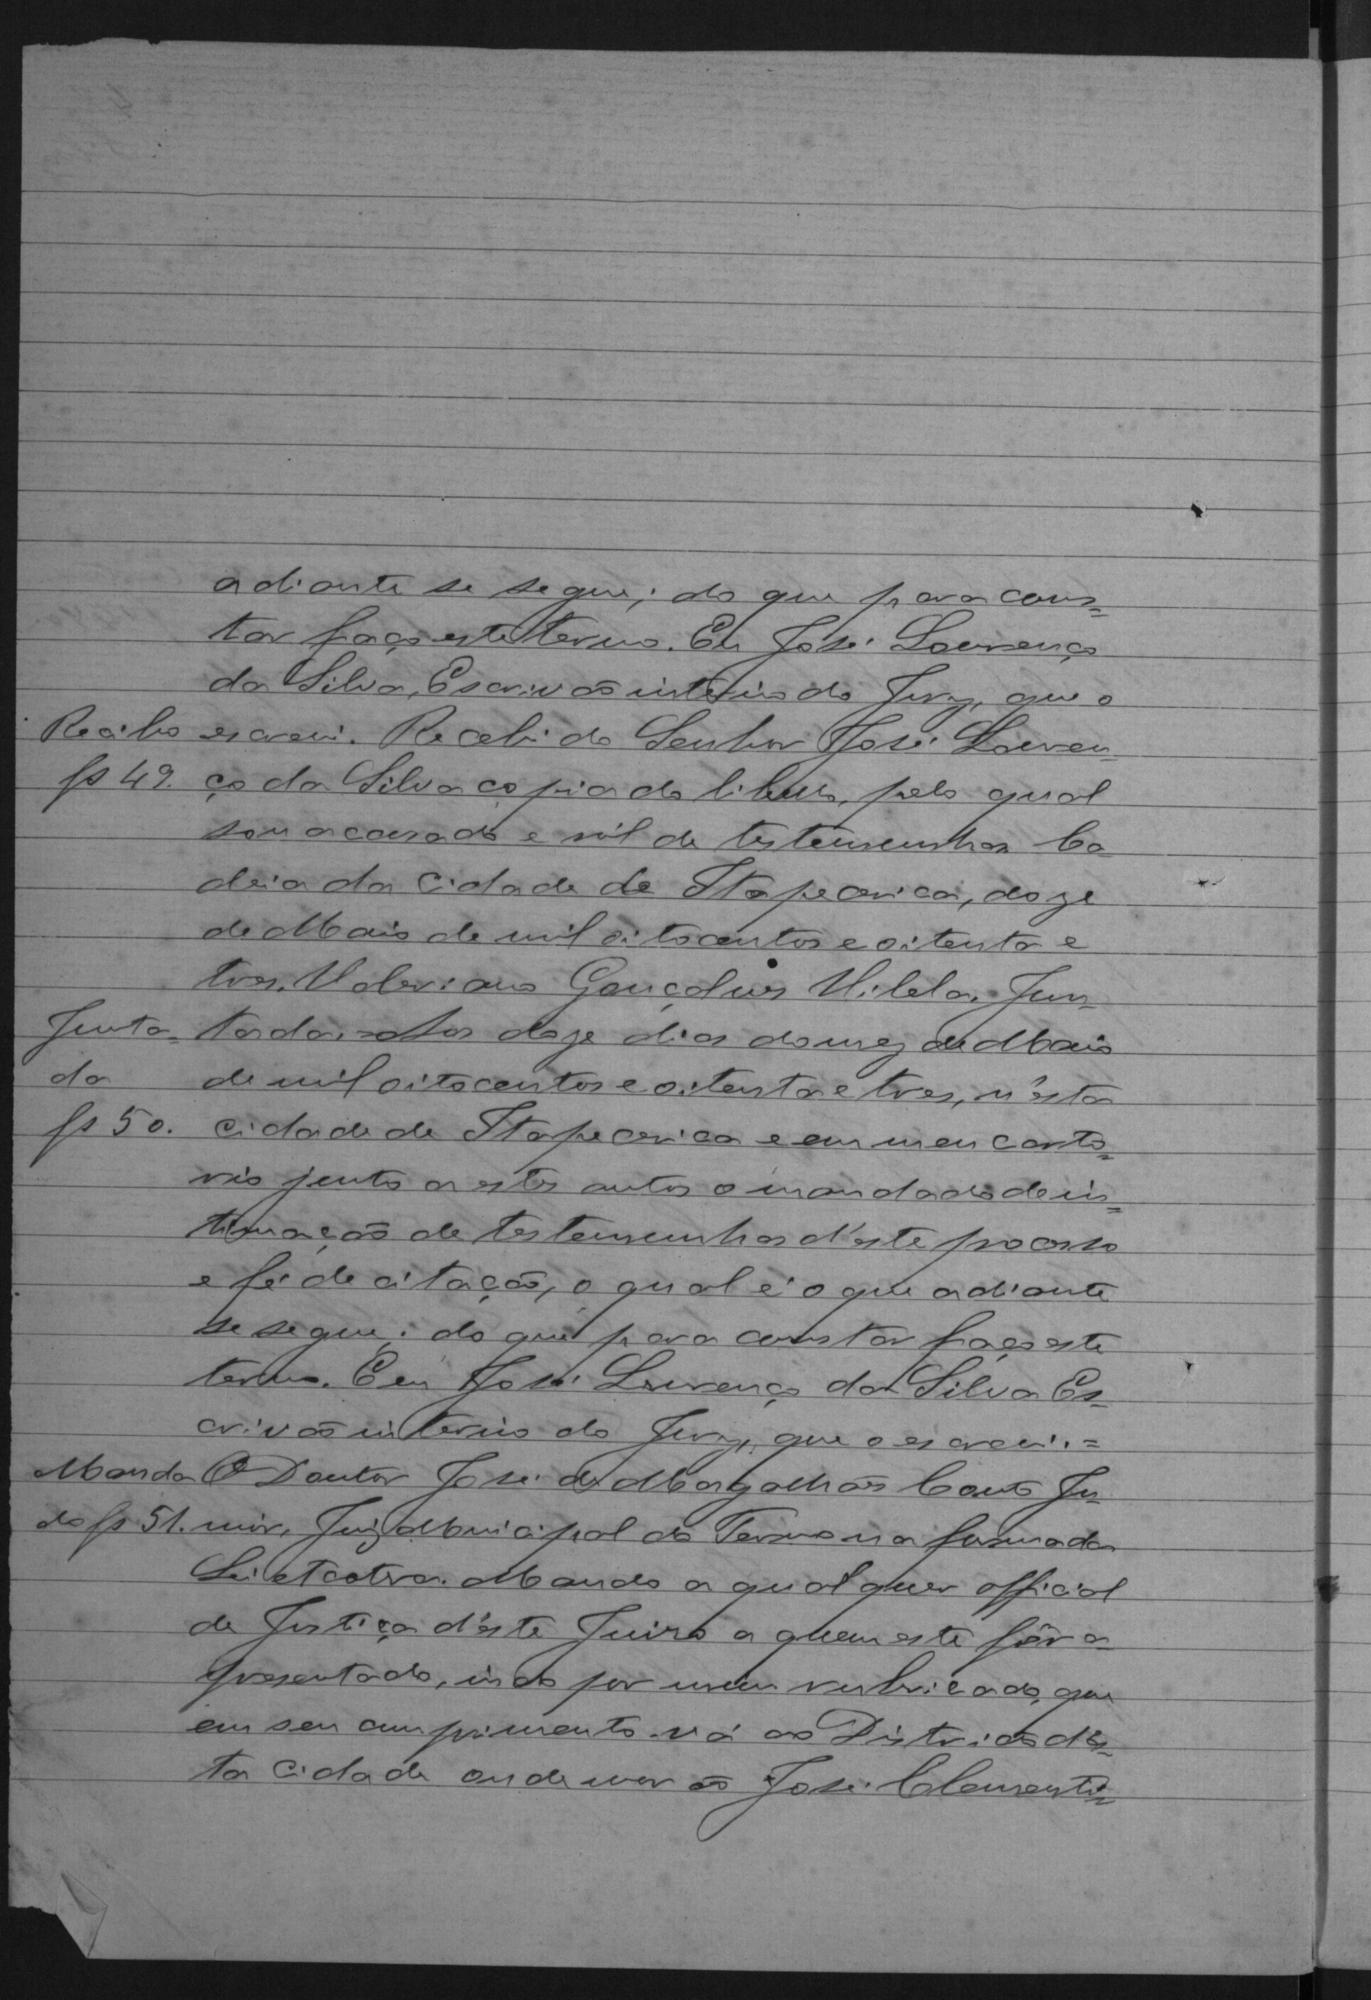 adiante se segue; do que para cons=
tar faço este termo. Eu José Lourenço
da Silva, Escrivão interino do Jury, que o
Recibo escrevi. Recebi do Senhor José Louren-
fs 49. ço da Silva copia do libello, pelo qual
sou accusado e rol de testemunhas Ca-
deia da Cidade de Itapecerica, doze
de Maio de mil oitocentos e oitenta e
tres. Valeriano Gonçalves Vilela. Jun-
Junta= tada. Aos doze dias do mez de Maio
da de mil oitocentos e oitenta e tres, n'esta
fs 50. cidade de Itapecerica e em meu carto=
rio junto a estes autos o mandado de in=
timação de testemunhas d'este processo
e fé de citação, o qual é o que adiante
se segue; do que para constar faço este
termo. Eu José Lourenço da Silva Es=
crivão interino do Jury, que o escrevi.=
Manda O Doutor José de Magalhães Couto Ju-
do fs 51. nior, Juiz Municipal do Termo na forma da
Lei etcetera. Mando a qualquer official
de Justiça d'este Juizo a quem este fôr a-
presentado, indo por mim rubricado, que
em seu cumprimento vá ao Districto d'es=
ta cidade onde morão José Clementi=